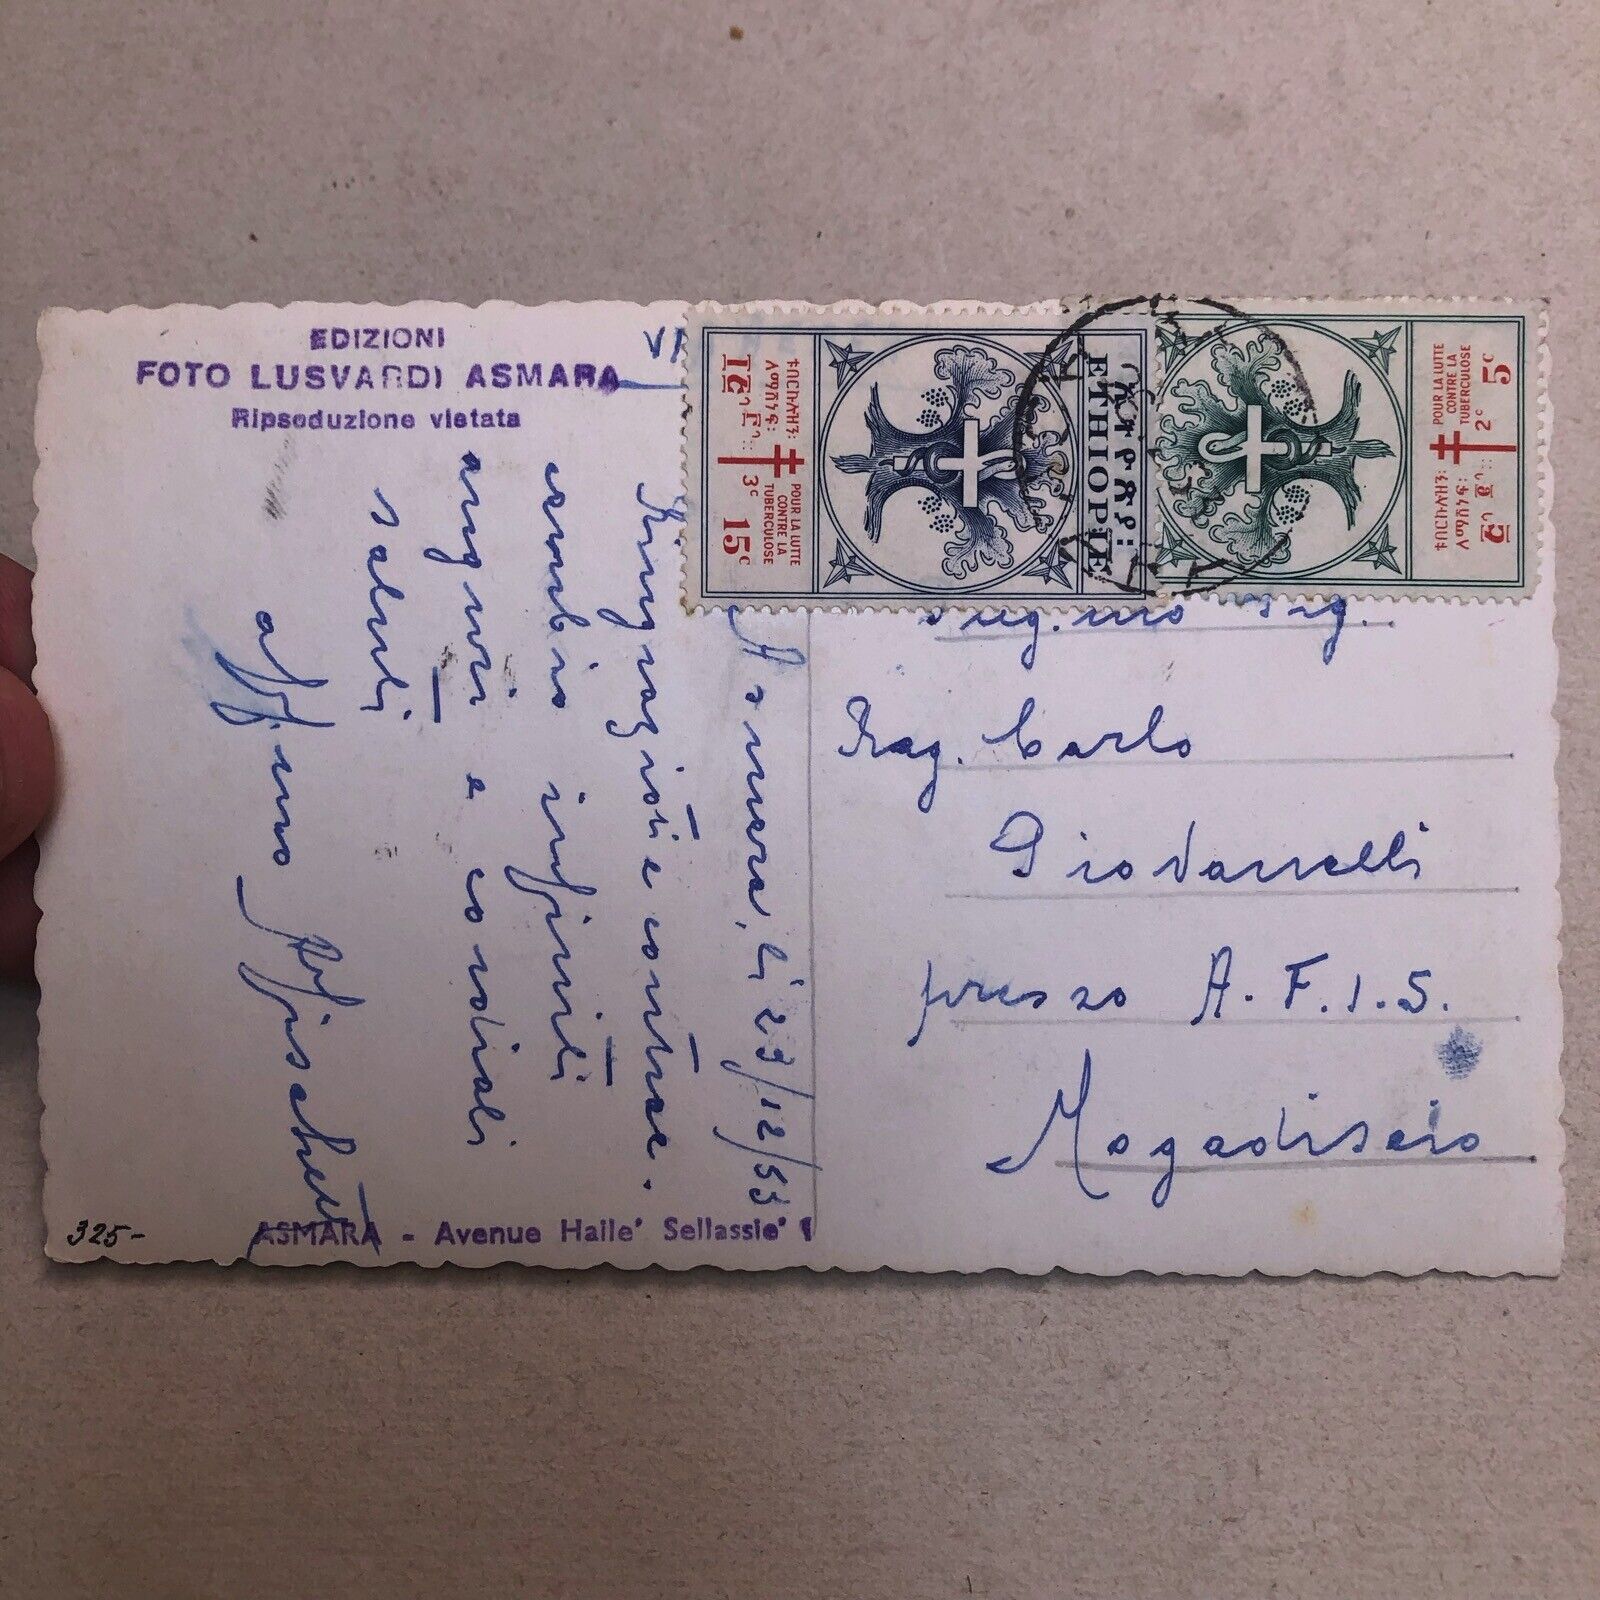 EDIZIONI
FOTO LUSVARDI ASMARA
Ripseduzione vietata
Asmara, li 23/12/53
Ringraziati e contrac.
cambio infiniti
auguri e cordiali
saluti
aff.mo
ASMARA - Avenue Haile' Sellassie'
325-
15c
3c
POUR LA LUTTE
CONTRE LA
TUBERCULOSE
ETHIOPIE
ኢትዮጵያ፡
5c
2c
POUR LA LUTTE
CONTRE LA
TUBERCULOSE
Preg.mo Sig.
Rag. Carlo
Giovannelli
presso A.F.I.S.
Mogadiscio